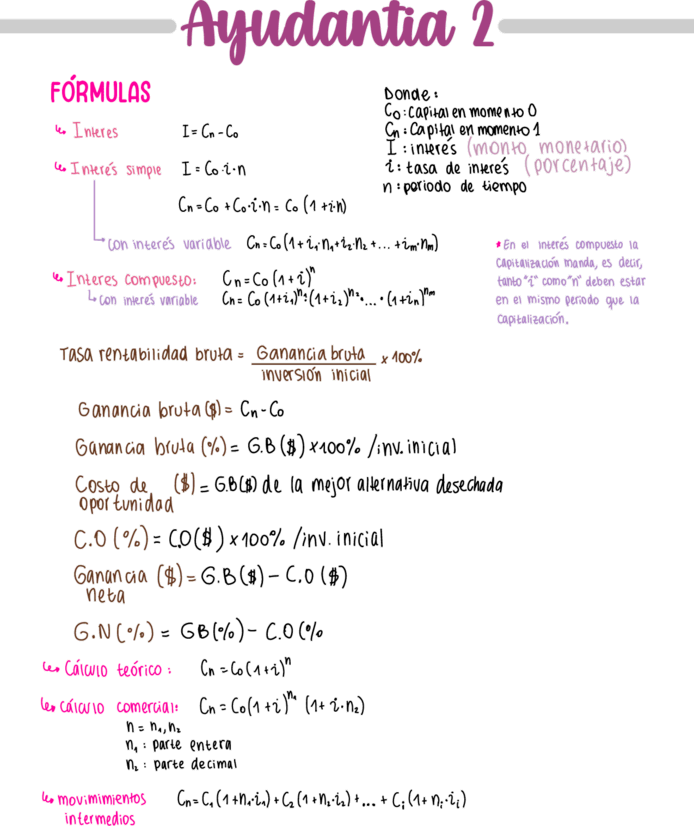 Ayudantia 2
FÓRMULAS
Donde:
C₀: Capital en momento 0
Cn: Capital en momento 1
I: interés (monto monetario)
i: tasa de interés (porcentaje)
n: periodo de tiempo
↳ Interes I = Cn - C₀
↳ Interés simple I = C₀·i·n
Cn = C₀ + C₀·i·n = C₀ (1 + i·n)
↳ con interés variable Cn = C₀ (1 + i₁·n₁ + i₂·n₂ + ... + im·nm)
↳ Interes compuesto: Cn = C₀ (1+i)ⁿ
↳ con interés variable Cn = C₀ (1+i₁)^n₁·(1+i₂)^n₂·...·(1+in)^nm
* En el interés compuesto la
capitalización manda, es decir,
tanto "i" como "n" deben estar
en el mismo periodo que la
capitalización.
Tasa rentabilidad bruta = Ganancia bruta x 100%
inversión inicial
Ganancia bruta ($) = Cn - C₀
Ganancia bruta (%) = G.B ($) x100% /inv. inicial
Costo de ($) = G.B ($) de la mejor alternativa desechada
oportunidad
C.O (%) = C.O ($) x 100% /inv. inicial
Ganancia ($) = G.B ($) - C.O ($)
neta
G.N (%) = GB (%) - C.O (%
↳ Cálculo teórico: Cn = C₀ (1+i)ⁿ
↳ cálculo comercial: Cn = C₀ (1+i)^n₁ (1 + i·n₂)
n = n₁,n₂
n₁: parte entera
n₂: parte decimal
↳ movimimientos Cn = C₁ (1+n₁·i₁) + C₂ (1+n₂·i₂) + ... + Cj (1+nj·ij)
intermedios